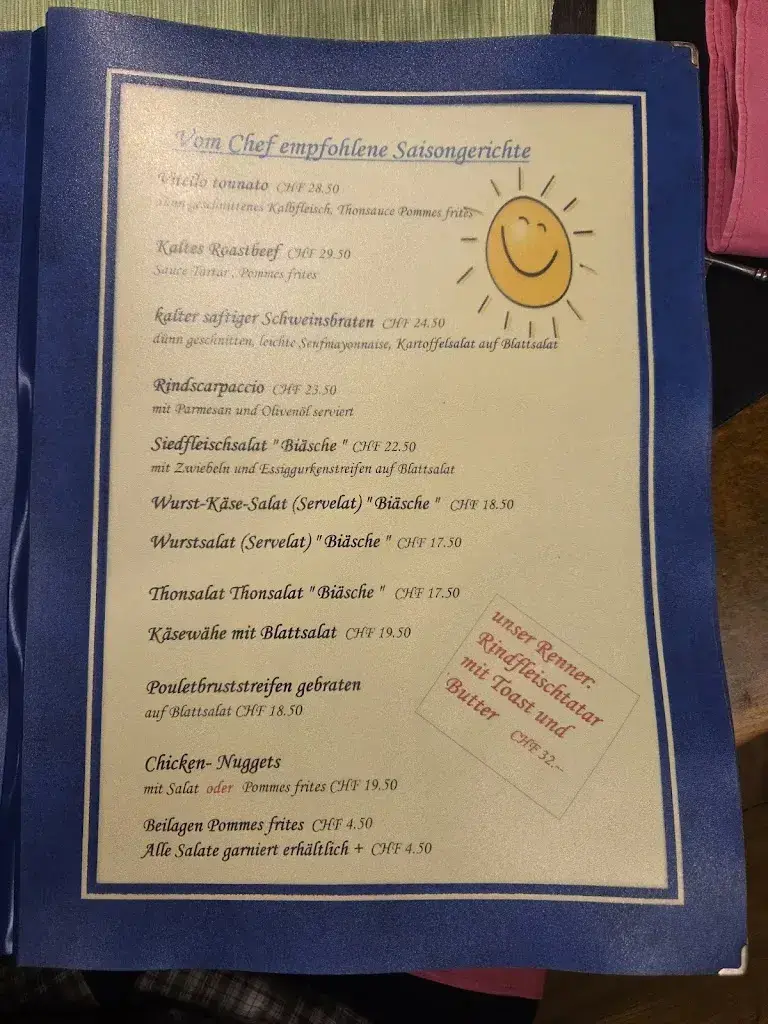 Vom Chef empfohlene Saisongerichte
Vitello tonnato CHF 28.50
dünn geschnittenes Kalbfleisch, Thonsauce Pommes frites
Kaltes Roastbeef CHF 29.50
Sauce Tartar , Pommes frites
kalter saftiger Schweinsbraten CHF 24.50
dünn geschnitten, leichte Senfmayonnaise, Kartoffelsalat auf Blattsalat
Rindscarpaccio CHF 23.50
mit Parmesan und Olivenöl serviert
Siedfleischsalat "Biäsche " CHF 22.50
mit Zwiebeln und Essiggurkenstreifen auf Blattsalat
Wurst-Käse-Salat (Servelat) "Biäsche " CHF 18.50
Wurstsalat (Servelat) "Biäsche " CHF 17.50
Thonsalat Thonsalat "Biäsche " CHF 17.50
Käsewähe mit Blattsalat CHF 19.50
Pouletbruststreifen gebraten
auf Blattsalat CHF 18.50
unser Renner:
Rindfleischtatar
mit Toast und
Butter CHF 32.--
Chicken- Nuggets
mit Salat oder Pommes frites CHF 19.50
Beilagen Pommes frites CHF 4.50
Alle Salate garniert erhältlich + CHF 4.50